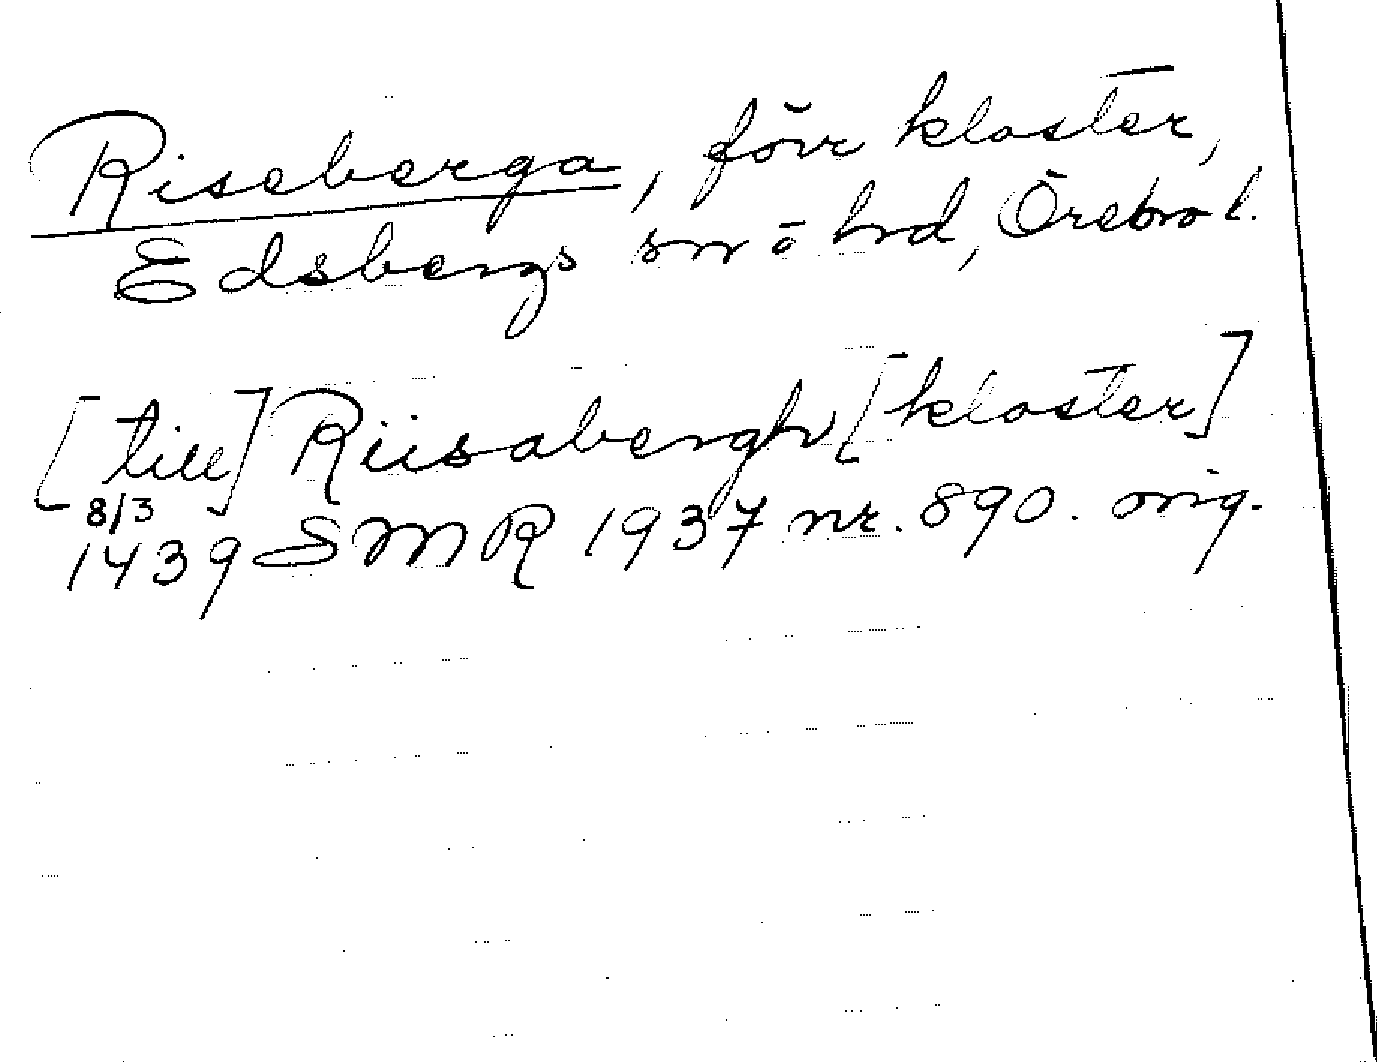 Riseberga, förr kloster,
Edsbergs sn o hrd, Örebro l.
[till] Riisabergh [kloster]
8/3
1439 SMR 1937 nr. 890. orig.